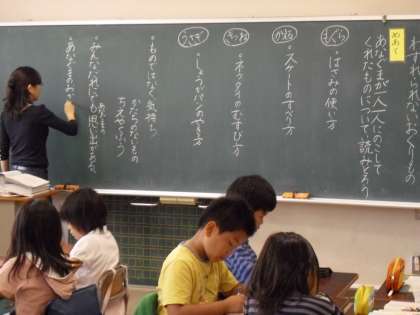 わすれられないおくりもの
めあて
あなぐまが一人一人にのこして
くれたものについて、読みとろう
もぐら
・はさみの使い方
かえる
・スケートのすべり方
きつね
・ネクタイのむすび方
うさぎ
・しょうがパンのやき方
・ものではなく気持ち
かたちのないもの
ちえやくふう
・みんなだれにも思い出がある。
あなぐまの
・あなぐまのみや